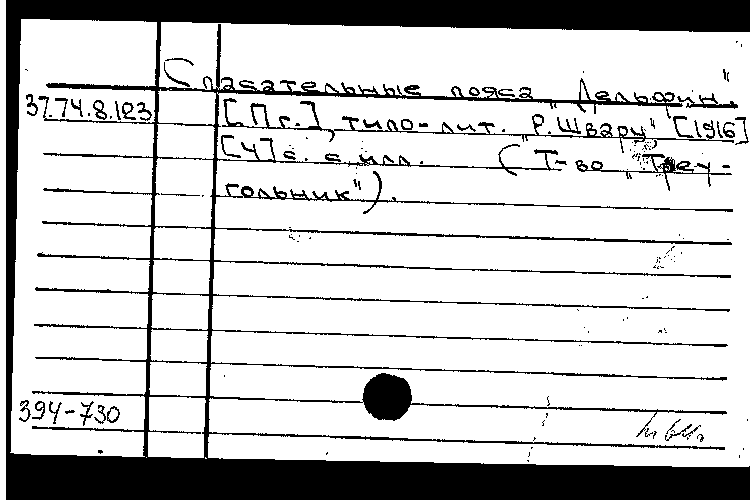 Спасательные пояса „Дельфин".
37.74.8.123 [Пг.], типо-лит. „Р.Шварц" [1916]
[4] с. с илл. (Т-во „Треу-
гольник").
394-730